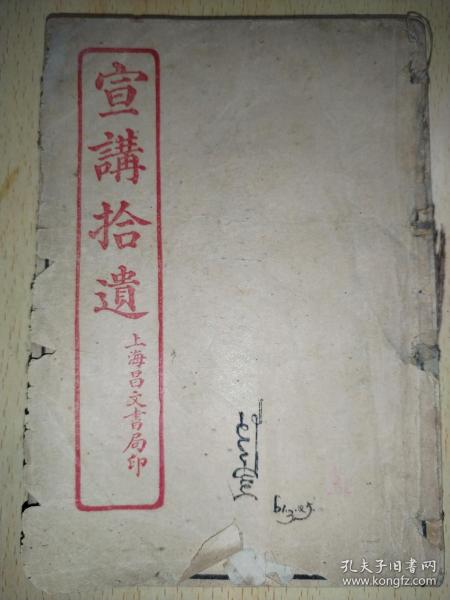 宣講拾遺
上海昌文書局印
61.3.25.
孔夫子旧书网
www.kongfz.com